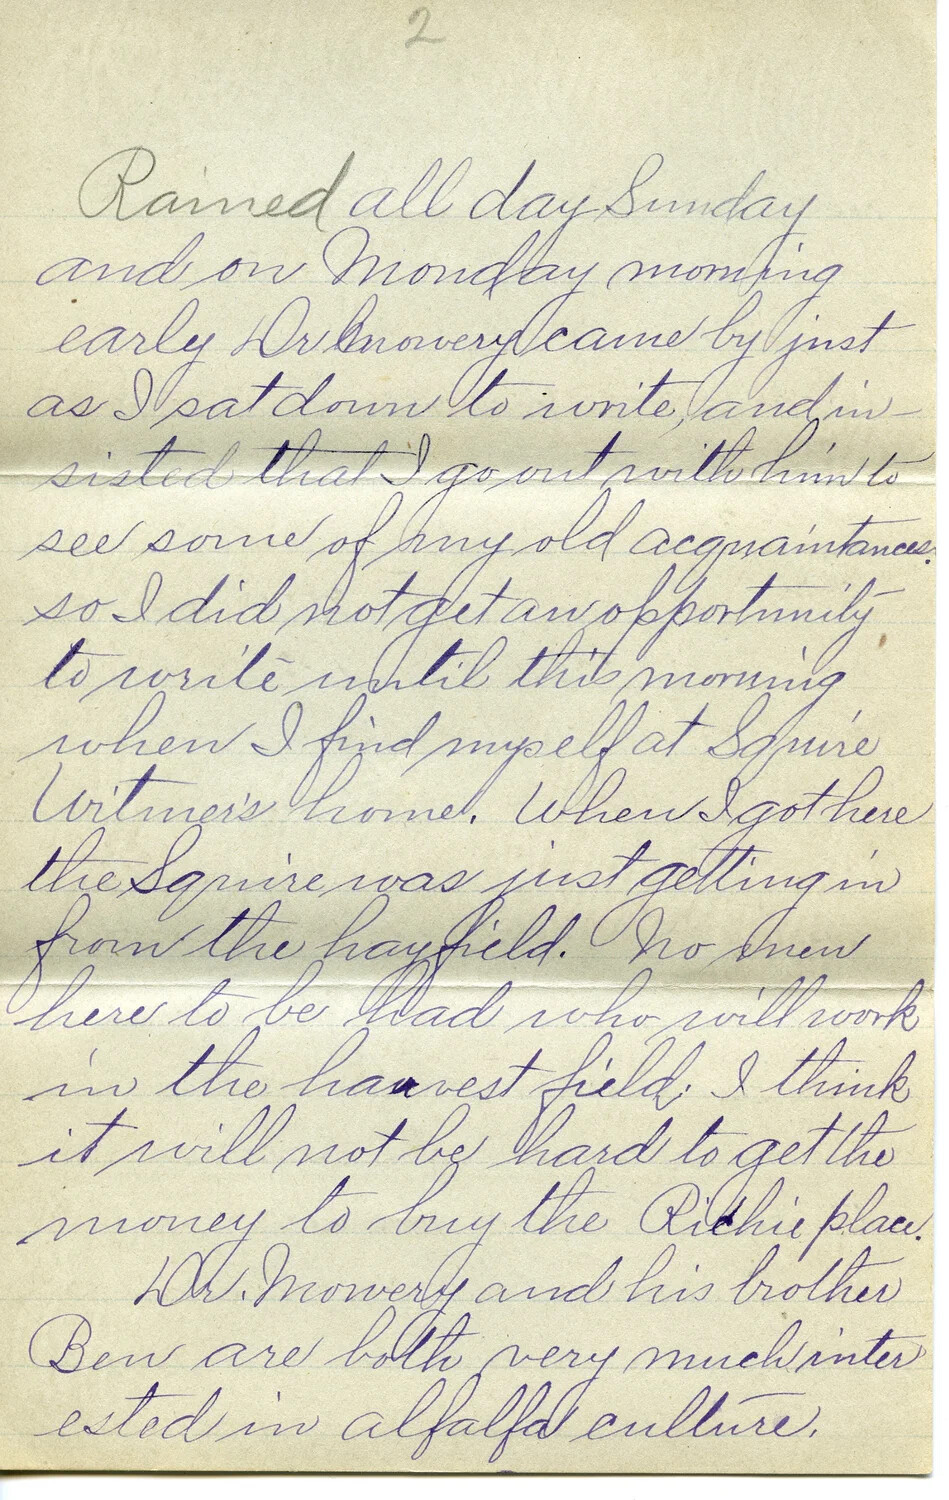 2
Rained all day Sunday
and on Monday morning
early Dr Mowery came by just
as I sat down to write, and in-
sisted that I go out with him to
see some of my old acquaintances.
so I did not get an opportunity
to write until this morning
when I find myself at Squire
Witmer's home. When I got here
the Squire was just getting in
from the hayfield. No men
here to be had who will work
in the harvest field. I think
it will not be hard to get the
money to buy the Richie place.
Dr. Mowery and his brother
Ben are both very much inter
ested in alfalfa culture.